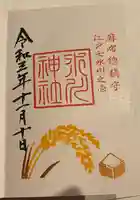 麻布総鎮守
江戸七氷川之一
氷川
神社
令和三年十一月十日